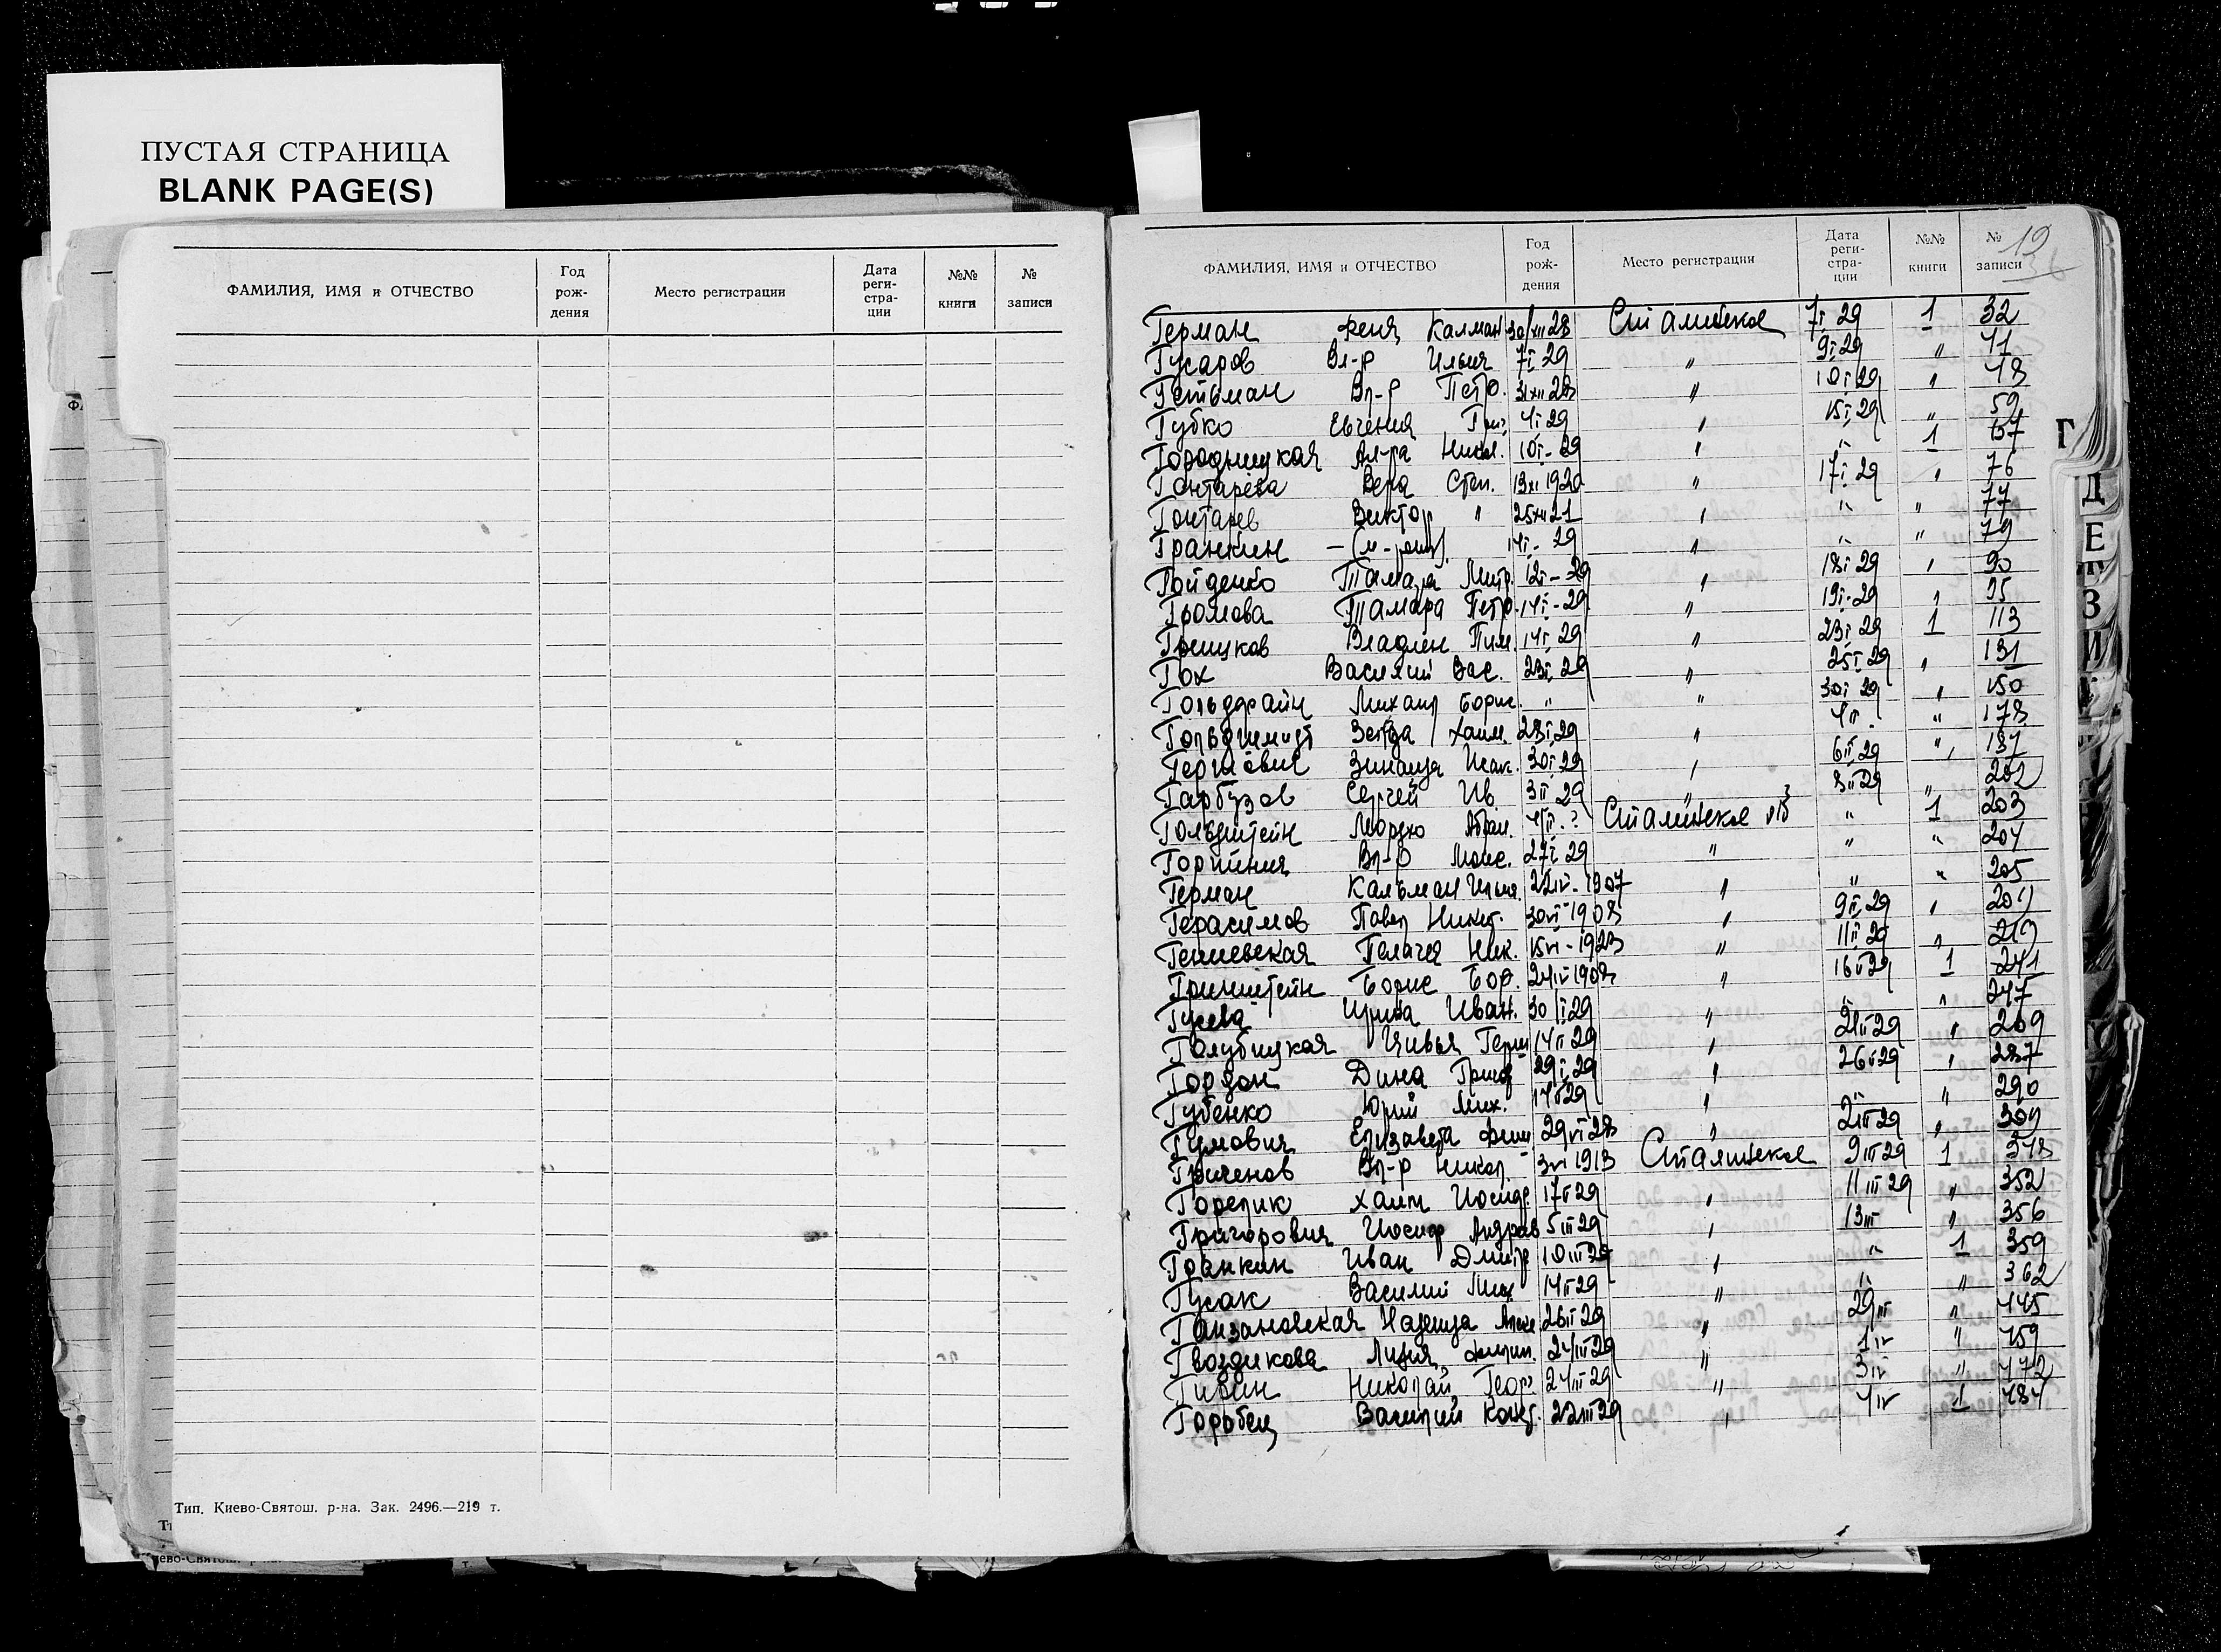 ПУСТАЯ СТРАНИЦА
BLANK PAGE(S)
ФАМИЛИЯ, ИМЯ и ОТЧЕСТВО Год рож- дения Место регистрации Дата реги- стра- ции №№ книги № записи
Тип. Киево-Святош. р-на. Зак. 2496.—219 т.
19
ФАМИЛИЯ, ИМЯ и ОТЧЕСТВО Год рож- дения Место регистрации Дата реги- стра- ции №№ книги № записи
Герман Феня Калман 30/XII 28 Сталинское 7I 29 1 32
Гусаров Вл-р Ильич 7I 29 " 9I 29 " 41
Гетьман Вл-р Петр. 31XII 28 " 10I 29 " 48
Губко Евгения Гри. 4I 29 " 15I 29 " 59
Городницкая Ал-ра Никол. 10I-29 " " 1 67
Гонтарева Вера Степ. 19XI 1920 " 17I 29 " 76
Гонтарев Виктор " 25XII 21 " " " 77
Гранкин 14I-29 " " " 79
Гойденко Тамара Митр. 12I-29 " 18I 29 " 90
Громова Тамара Петр. 14I-29 " 19I-29 " 95
Грицков Владлен Пим. 14I 29 " 23I 29 1 113
Гох Василий Вас. 23I 29 " 25I 29 " 131
Гольдфайн Михаил Борис. " " 30I 29 " 150
Гольдшмидт Зельда Хаим. 28I 29 " 4II " 178
Гершович Зинаида Исак. 30I 29 " 6II 29 " 187
Гарбузов Сергей Ив. 3II 29 " 8II 29 " 202
Гольдштейн Мордко Абрам. 4II.? Сталинское " 1 203
Горпиния Вл-р Моис. 27I 29 " " " 204
Герман Кальман Ильич. 22IV-1907 " " " 205
Герасимов Павел Никит. 30VI-1908 " 9II 29 " 209
Гешевская Пелагея Ник. 15VI-1923 " 11II 29 " 219
Гринштейн Борис Бор. 24IV 1908 " 16II 29 1 241
Гусева Ирина Иван. 30I 29 " " " 247
Голубицкая Цивья Герш 14II 29 " 21II 29 " 269
Гордон Дина Григор 29I 29 " 26II 29 " 287
Губенко Юрий Мих. 17II 29 " " " 290
Гумович Елизавета Фиш 29VI 28 " 2III 29 " 309
Вл-р Никол 3VI 1913 Сталинское 9III 29 1 348
Горелик Хаим Иосиф. 17II 29 " 11III 29 " 352
Григорович Иосиф Андрав 5III 29 " 13III " 356
Гранкин Иван Дмитр 10III 29 " " 1 359
Гусак Василий Мих 14II 29 " " " 362
Ганзановская Надежда Алекс 26II 29 " 29III " 445
Гвоздикова Лидия Филип. 24III 29 " 1IV " 459
Гивин Николай Георг 24III 29 " 3IV " 472
Горобец Василий Конст. 22III 29 " 4IV 1 484
Г
Д
Е
З
И